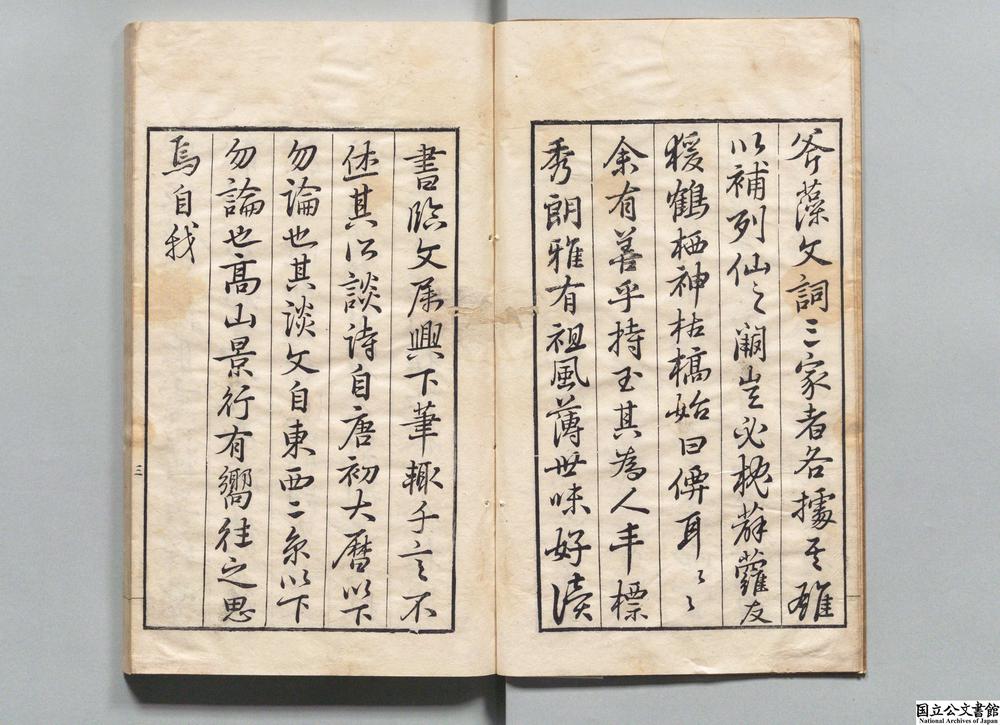 斧藻文詞三家者各據其雖
以補列仙之闕豈必枕薜蘿友
猨鶴栖神枯槁始曰僊耳〻〻
余有善乎持玉其為人丰標
秀朗雅有祖風薄世味好讀
書臨文屬興下筆輒千言不
休其以談詩自唐初大曆以下
勿論也其談文自東西二京以下
勿論也高山景行有嚮往之思
焉自我
三
国立公文書館
National Archives of Japan